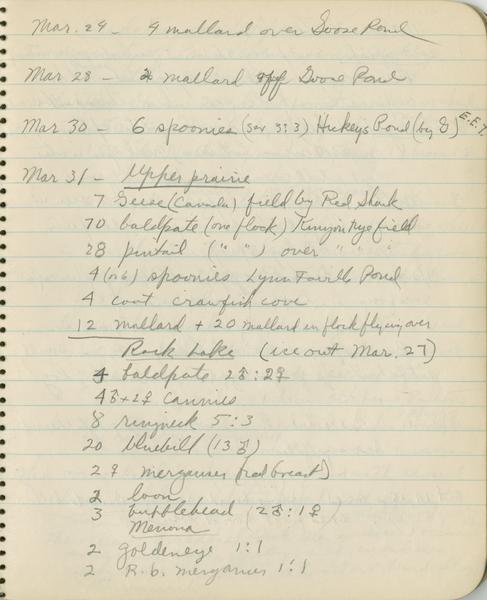 Mar. 29 - 9 mallard over Goose Pond
Mar 28 - 2 mallard off Goose Pond
Mar 30 - 6 spoonies (sex 3:3) Hickeys Pond (by 8) E.E.T.
Mar 31 - Upper prairie
7 Geese (Canada) field by Red Shack
70 baldpate (one flock) rye field
28 pintail (" ") over " " "
4 (or 6) spoonies Lynn Pond
4 coot crawfish cove
12 mallard + 20 mallard in flock flying over
Rock Lake (ice out Mar. 27)
4 baldpate 2♂:2♀
4♂+2♀ cannies
8 ringneck 5:3
20 bluebill (13♂)
2♀ merganser (red breast)
2 loon
3 bufflehead (2♂:1♀)
Menona
2 goldeneye 1:1
2 R.b. merganser 1:1